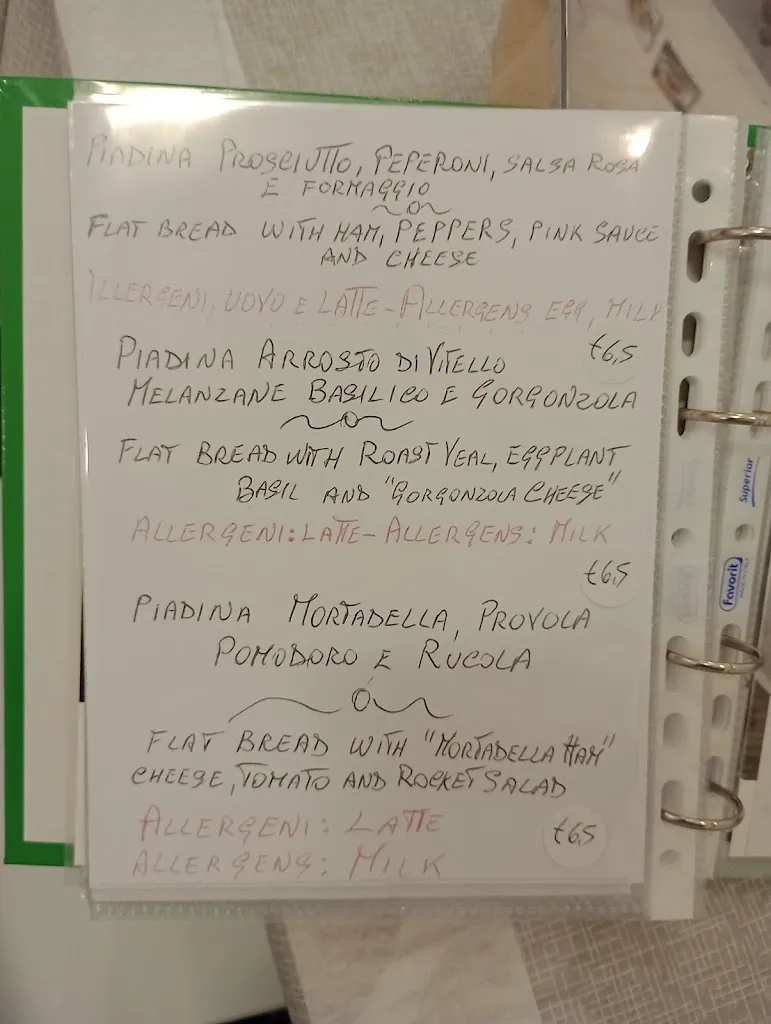 PIADINA PROSCIUTTO, PEPERONI, SALSA ROSA
E FORMAGGIO
FLAT BREAD WITH HAM, PEPPERS, PINK SAUCE
AND CHEESE
ALLERGENI, UOVO E LATTE - ALLERGENS EGG, MILK
€6,5
PIADINA ARROSTO DI VITELLO
MELANZANE BASILICO E GORGONZOLA
FLAT BREAD WITH ROAST VEAL, EGGPLANT
BASIL AND "GORGONZOLA CHEESE"
ALLERGENI: LATTE - ALLERGENS: MILK
€6,5
PIADINA MORTADELLA, PROVOLA
POMODORO E RUCOLA
FLAT BREAD WITH "MORTADELLA HAM"
CHEESE, TOMATO AND ROCKET SALAD
ALLERGENI: LATTE
ALLERGENS: MILK
€6,5
Superior
Favorit